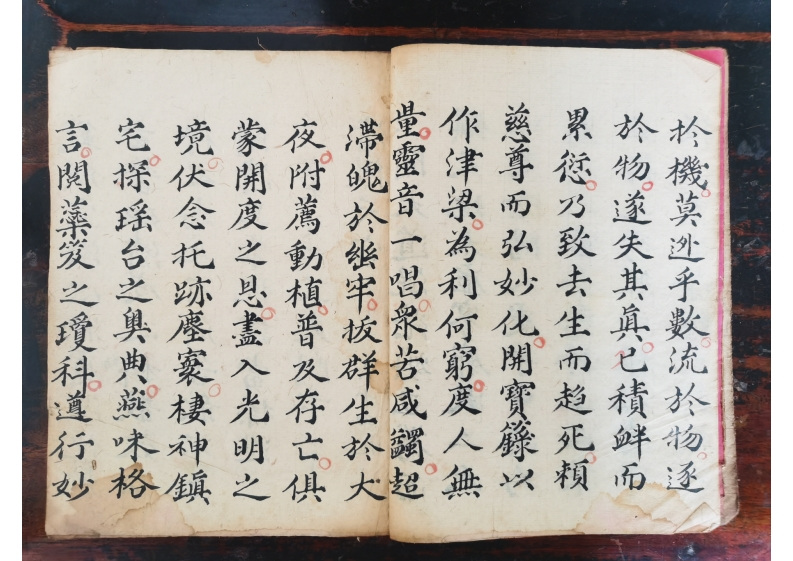 於機莫逃乎數流於物逐
於物遂失其真已積衅而
累愆乃致去生而趋死頼
慈尊而弘妙化開寶籙以
作津梁為利何窮度人無
量靈音一唱眾苦咸蠲超
滯魄於幽牢拔群生於大
夜附薦動植普及存亡俱
蒙開度之恩盡入光明之
境伏念托跡塵寰棲神鎮
宅探瑶台之奥典燕味格
言閱蘂笈之瓊科遵行妙